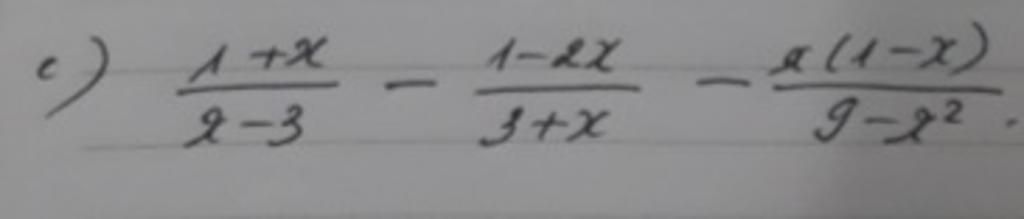 c) \frac{1+x}{x-3} - \frac{1-2x}{3+x} - \frac{x(1-x)}{9-x^2}.